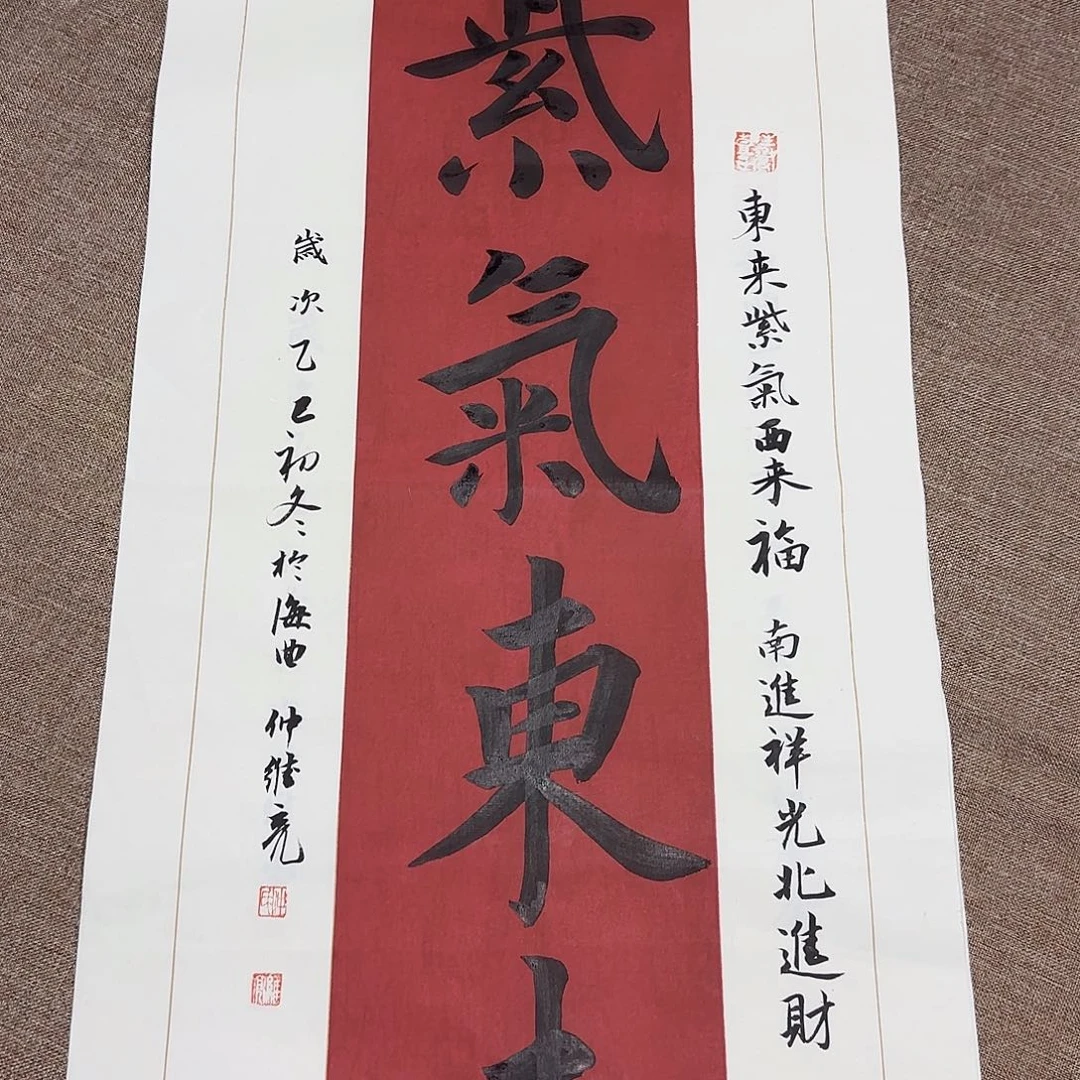 東来紫氣西来福 南進祥光北進財
紫氣東
歲次乙巳初冬於海曲 仲維亮